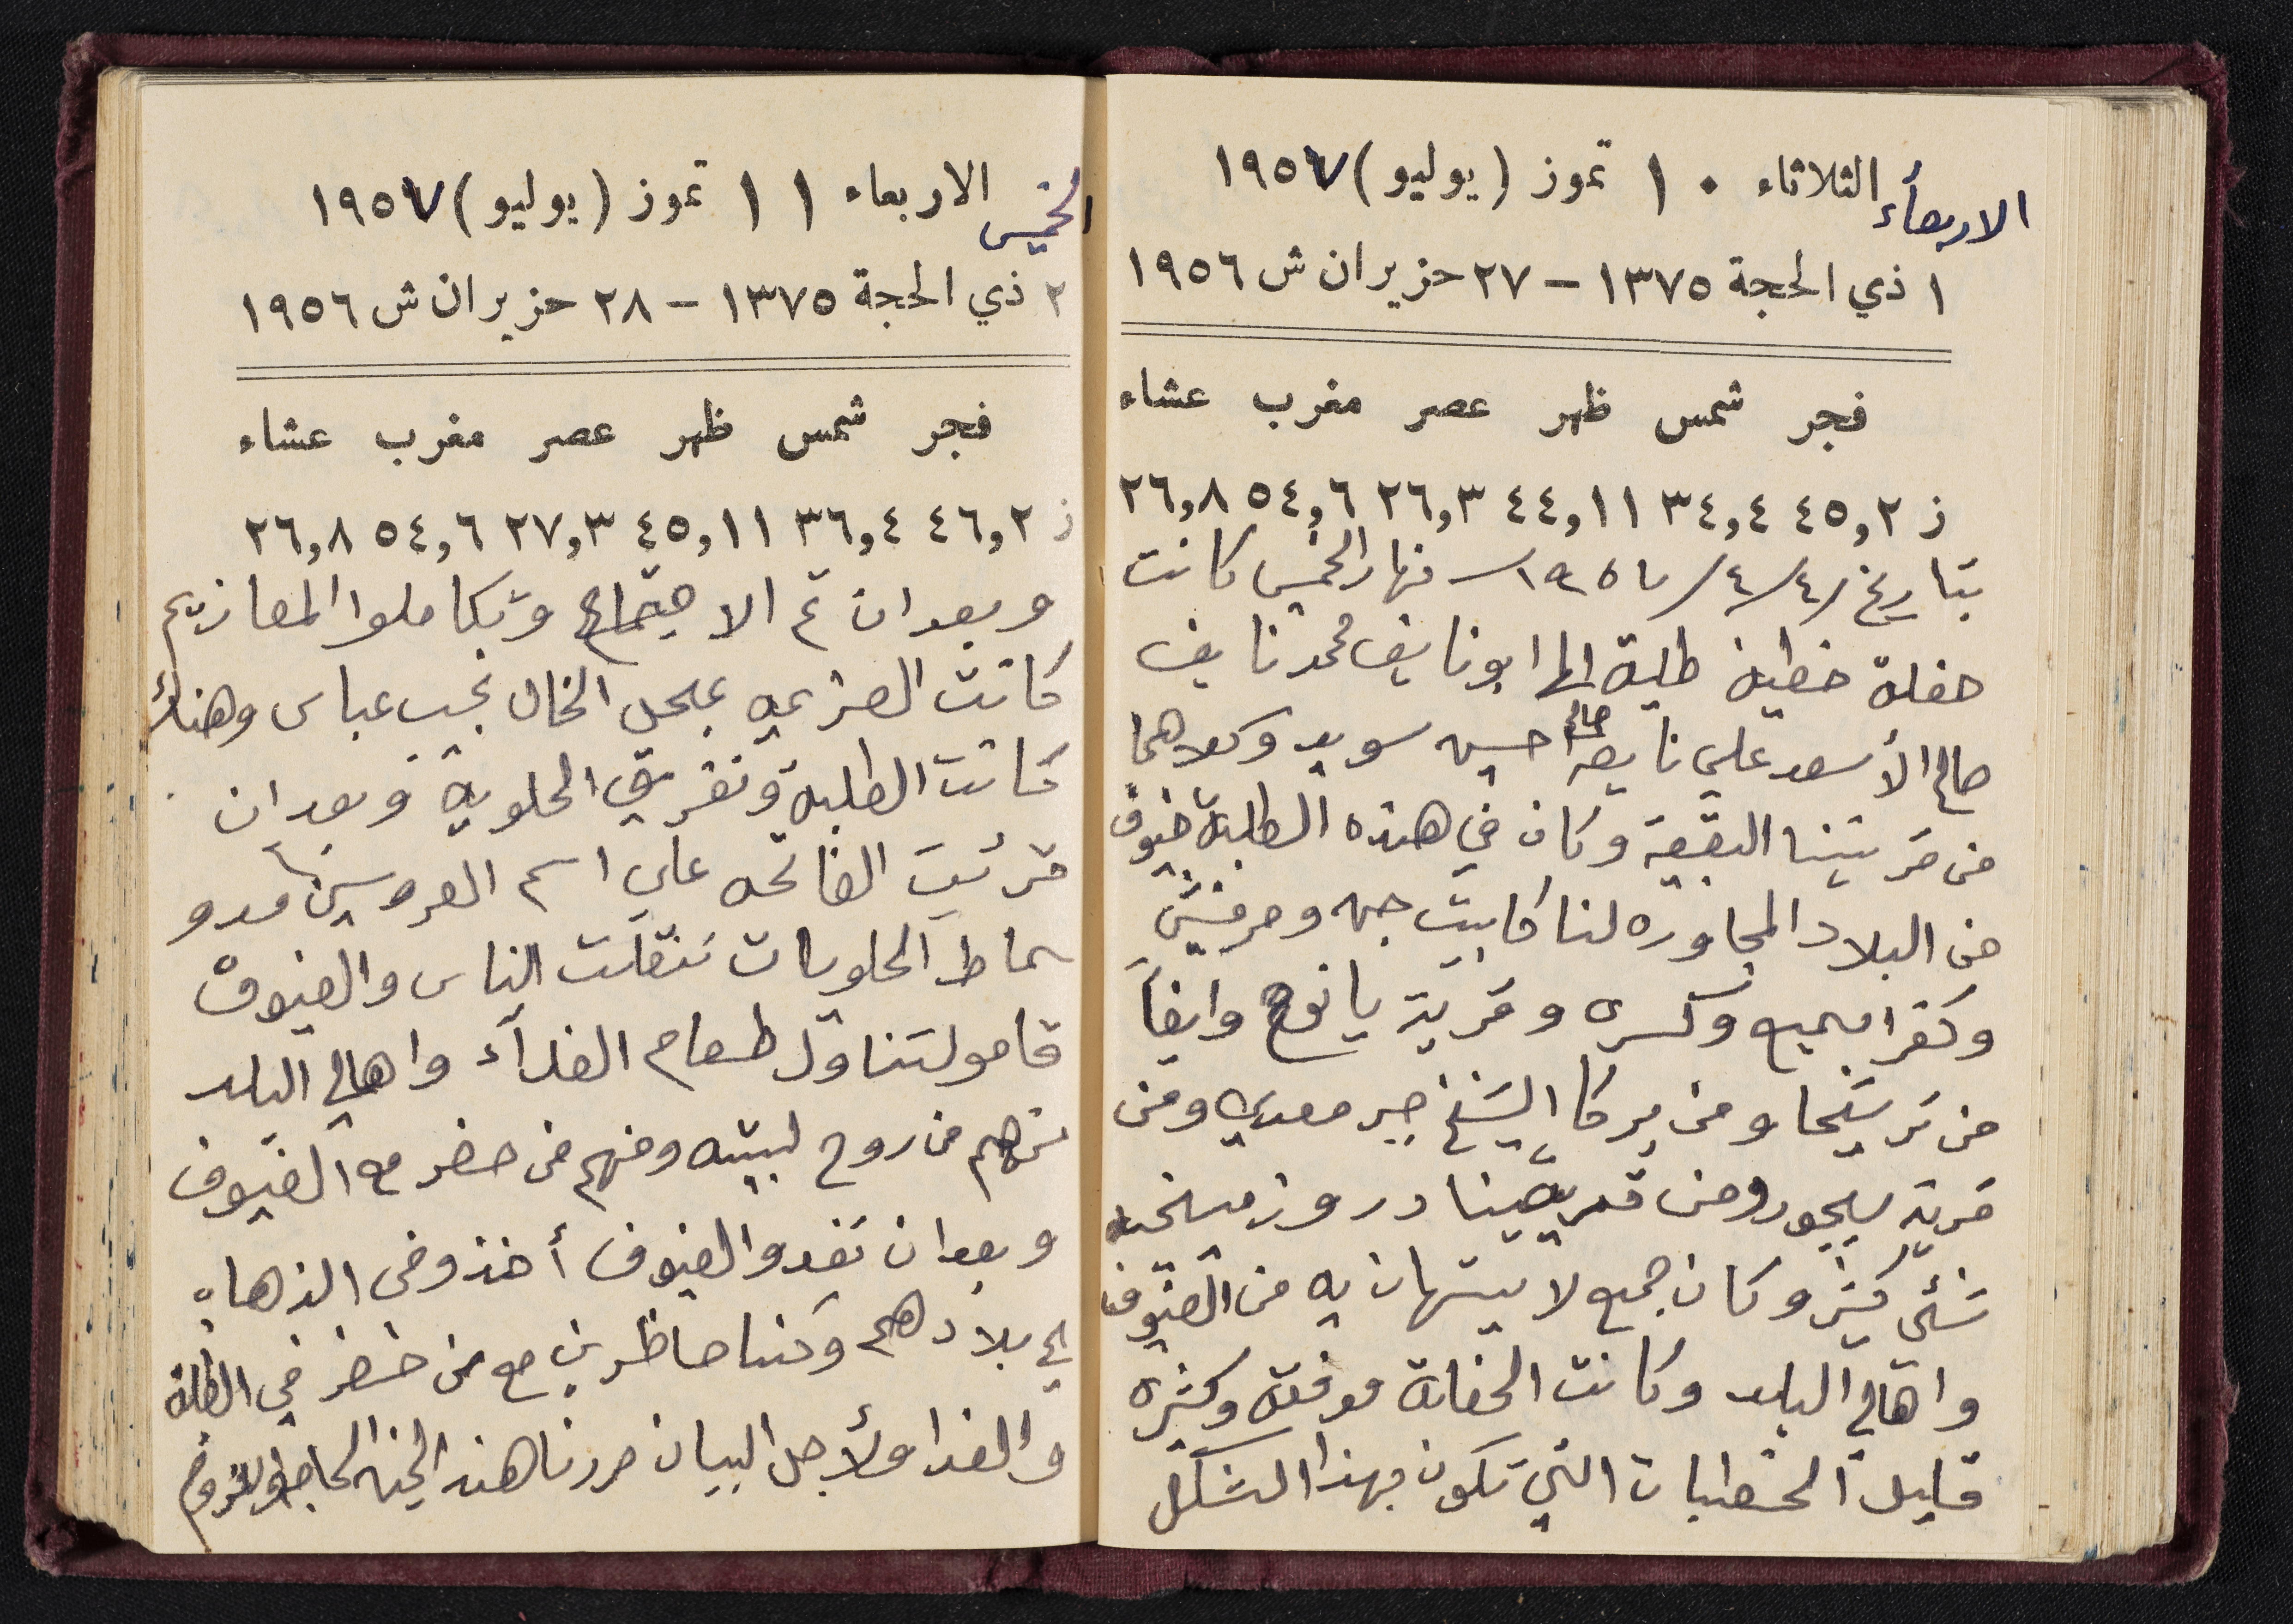 الاربعاء الثلاثاء ١٠ تموز (يوليو) ١٩٥٧
١ ذي الحجة ١٣٧٥ – ٢٧ حزيران ش ١٩٥٦
فجر شمس ظهر عصر مغرب عشاء
ز ٤٥,٢ ٣٤,٤ ٤٤,١١ ٢٦,٣ ٥٤,٦ ٢٦,٨
بتاريخ ٤/٤/١٩٥٧ نهار الخميس كانت
حفلة خطبة طلبة الها ابو نايف محمد نايف
صالح الأسعد علي نايفه صالح حسين سويد وكلاهما
من قريتنا البقيعة وكان في هذه الطلبة ضيوف
من البلاد المجاوره لنا كابيت جن وحرفيش
وكفر اسميع وكسرى وقرية يانوح وايضاً
من ترشيحا ومن يركا الشيخ جبر معدي ومن
قرية سجور ومن قريتنا دروز مسيحيه
شئ كثير وكان جمع لا يستهان به من الضيوف
واهالي البلد وكانت الحفلة موفقة وكثيره
قليل الخطبات التي تكون بهذا الشكل
الخميس الاربعاء ١١ تموز (يوليو) ١٩٥٧
٢ ذي الحجة ١٣٧٥ – ٢٨ حزيران ش ١٩٥٦
فجر شمس ظهر عصر مغرب عشاء
ز ٤٦,٢ ٣٦,٤ ٤٥,١١ ٢٧,٣ ٥٤,٦ ٢٦,٨
وبعد ان تم الاجتماع وتكاملوا المعازيم
كانت العزيمه بمحل الخال نجيب عباس وهناك
كانت الطلبة وتفريق الحلويه وبعد ان
قرئت الفاتحه على اسم العروسين مدو
سماط الحلويات تنقلت الناس والضيوف
قامو لتناول طعام الغدآء واهالي البلد
منهم من روح لبيته ومنهم من حضر مع الضيوف
وبعد ان تغدو الضيوف أخذو في الذهاب
الى بلادهم وكنا حاظرين مع من حضر في الطلبة
والغدا ولأجل البيان حررنا هذا لحين الحاجة واللزوم